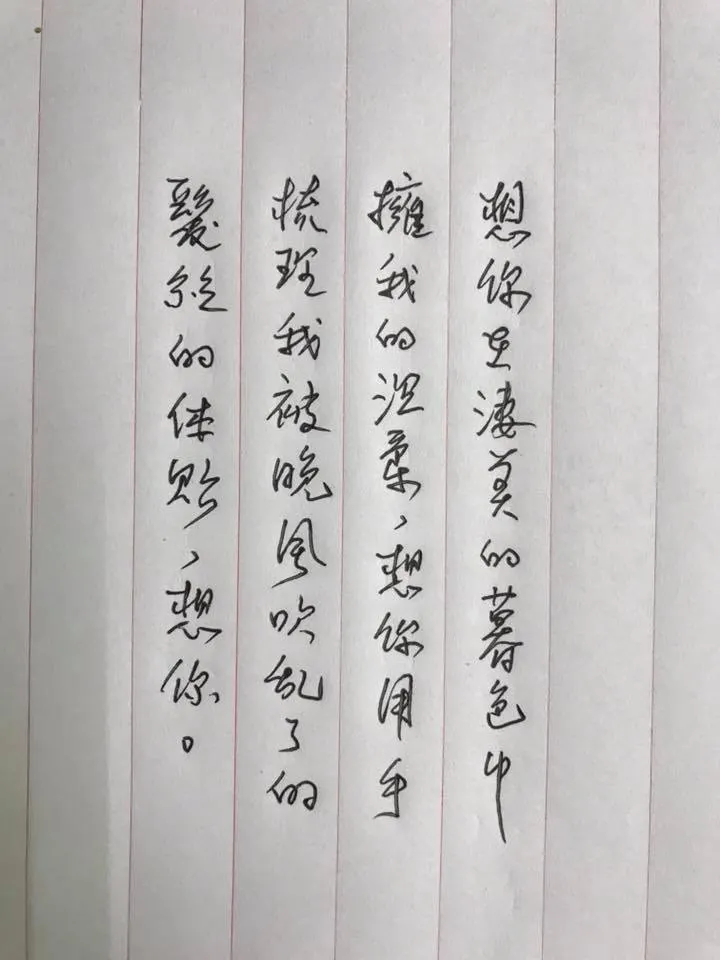 想你在凄美的暮色中
擁我的温柔，想你用手
梳理我被晚风吹乱了的
髮丝的体贴，想你。